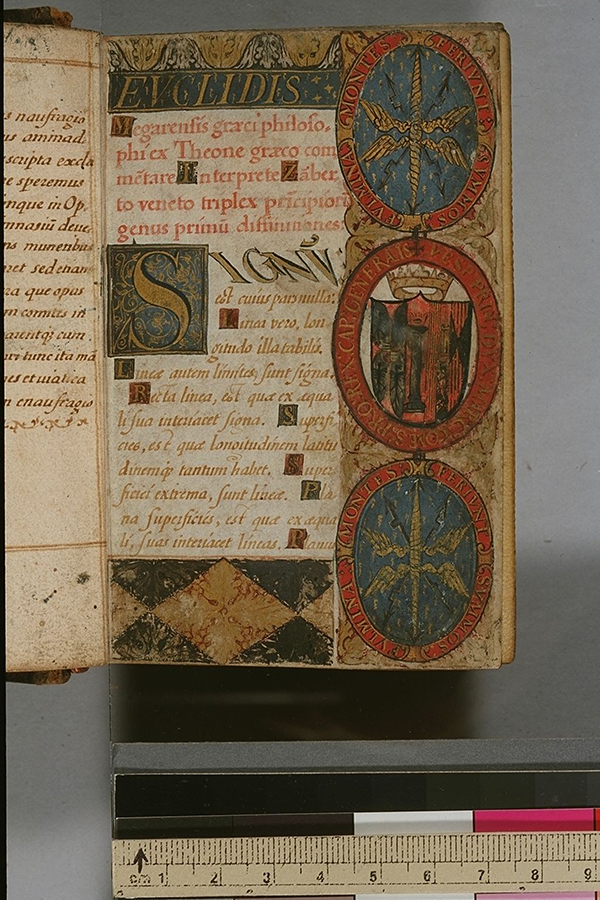 s naufragio
us animad
scripta excla
e speremus
inque in Op
mnasiū deue
ns muneribus
ret sed etiam
ra que opus
m comites in
arentq; cum
ur tunc ita ma
es et uiatica
n enaufragio
EVCLIDIS
Megarensis græci philoso-
phi ex Theone græco com
mētare Interprete Zāber,
to veneto triplex prīcipiorū
genus primū diffinitiones:
SIGNV̄
est cuius pars nulla:
Linea vero, lon-
gitudo illatabilis.
Lineæ autem limites, sunt signa.
Recta linea, est quæ ex æqua
li sua interiacet signa. Superfi-
cies, est quæ longitudinem latitu
dinemq; tantum habet. Super
ficiei extrema, sunt lineæ. Pla
na superficies, est quæ ex æqua
li, suas interiacet lineas. Planus
FERIVNT SVMMOS FVLMINA MONTES
FERIVNT SVMMOS FVLMINA MONTES
cm 1 2 3 4 5 6 7 8 9